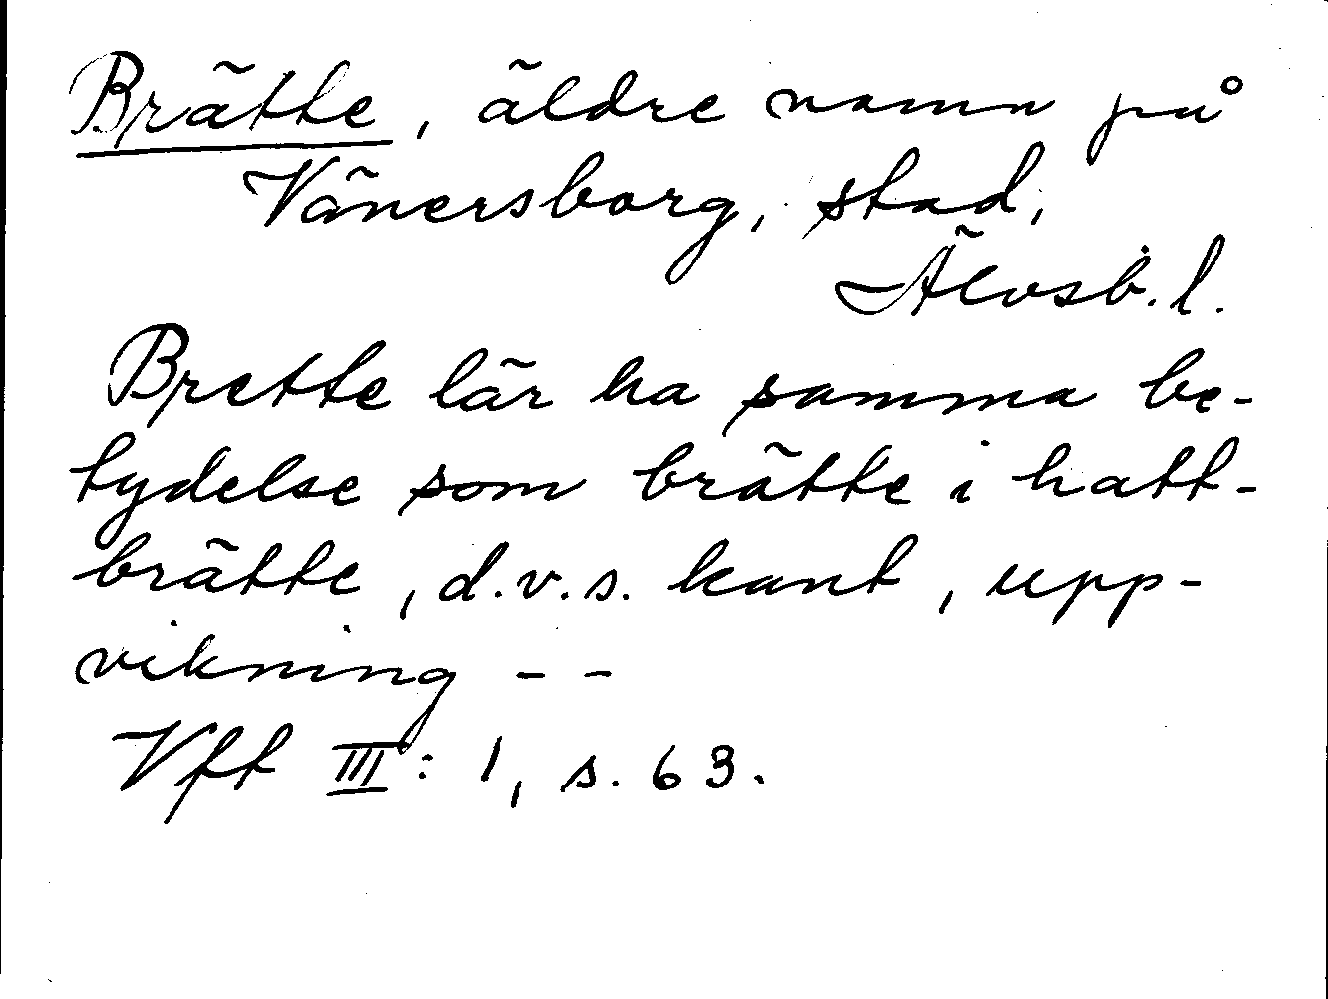 Brätte, äldre namn på
Vänersborg, stad,
Älvsb. l.
Brette lär ha samma be-
tydelse som brätte i hatt-
brätte, d.v.s. kant, upp-
vikning - -
Vft III: 1, s. 63.